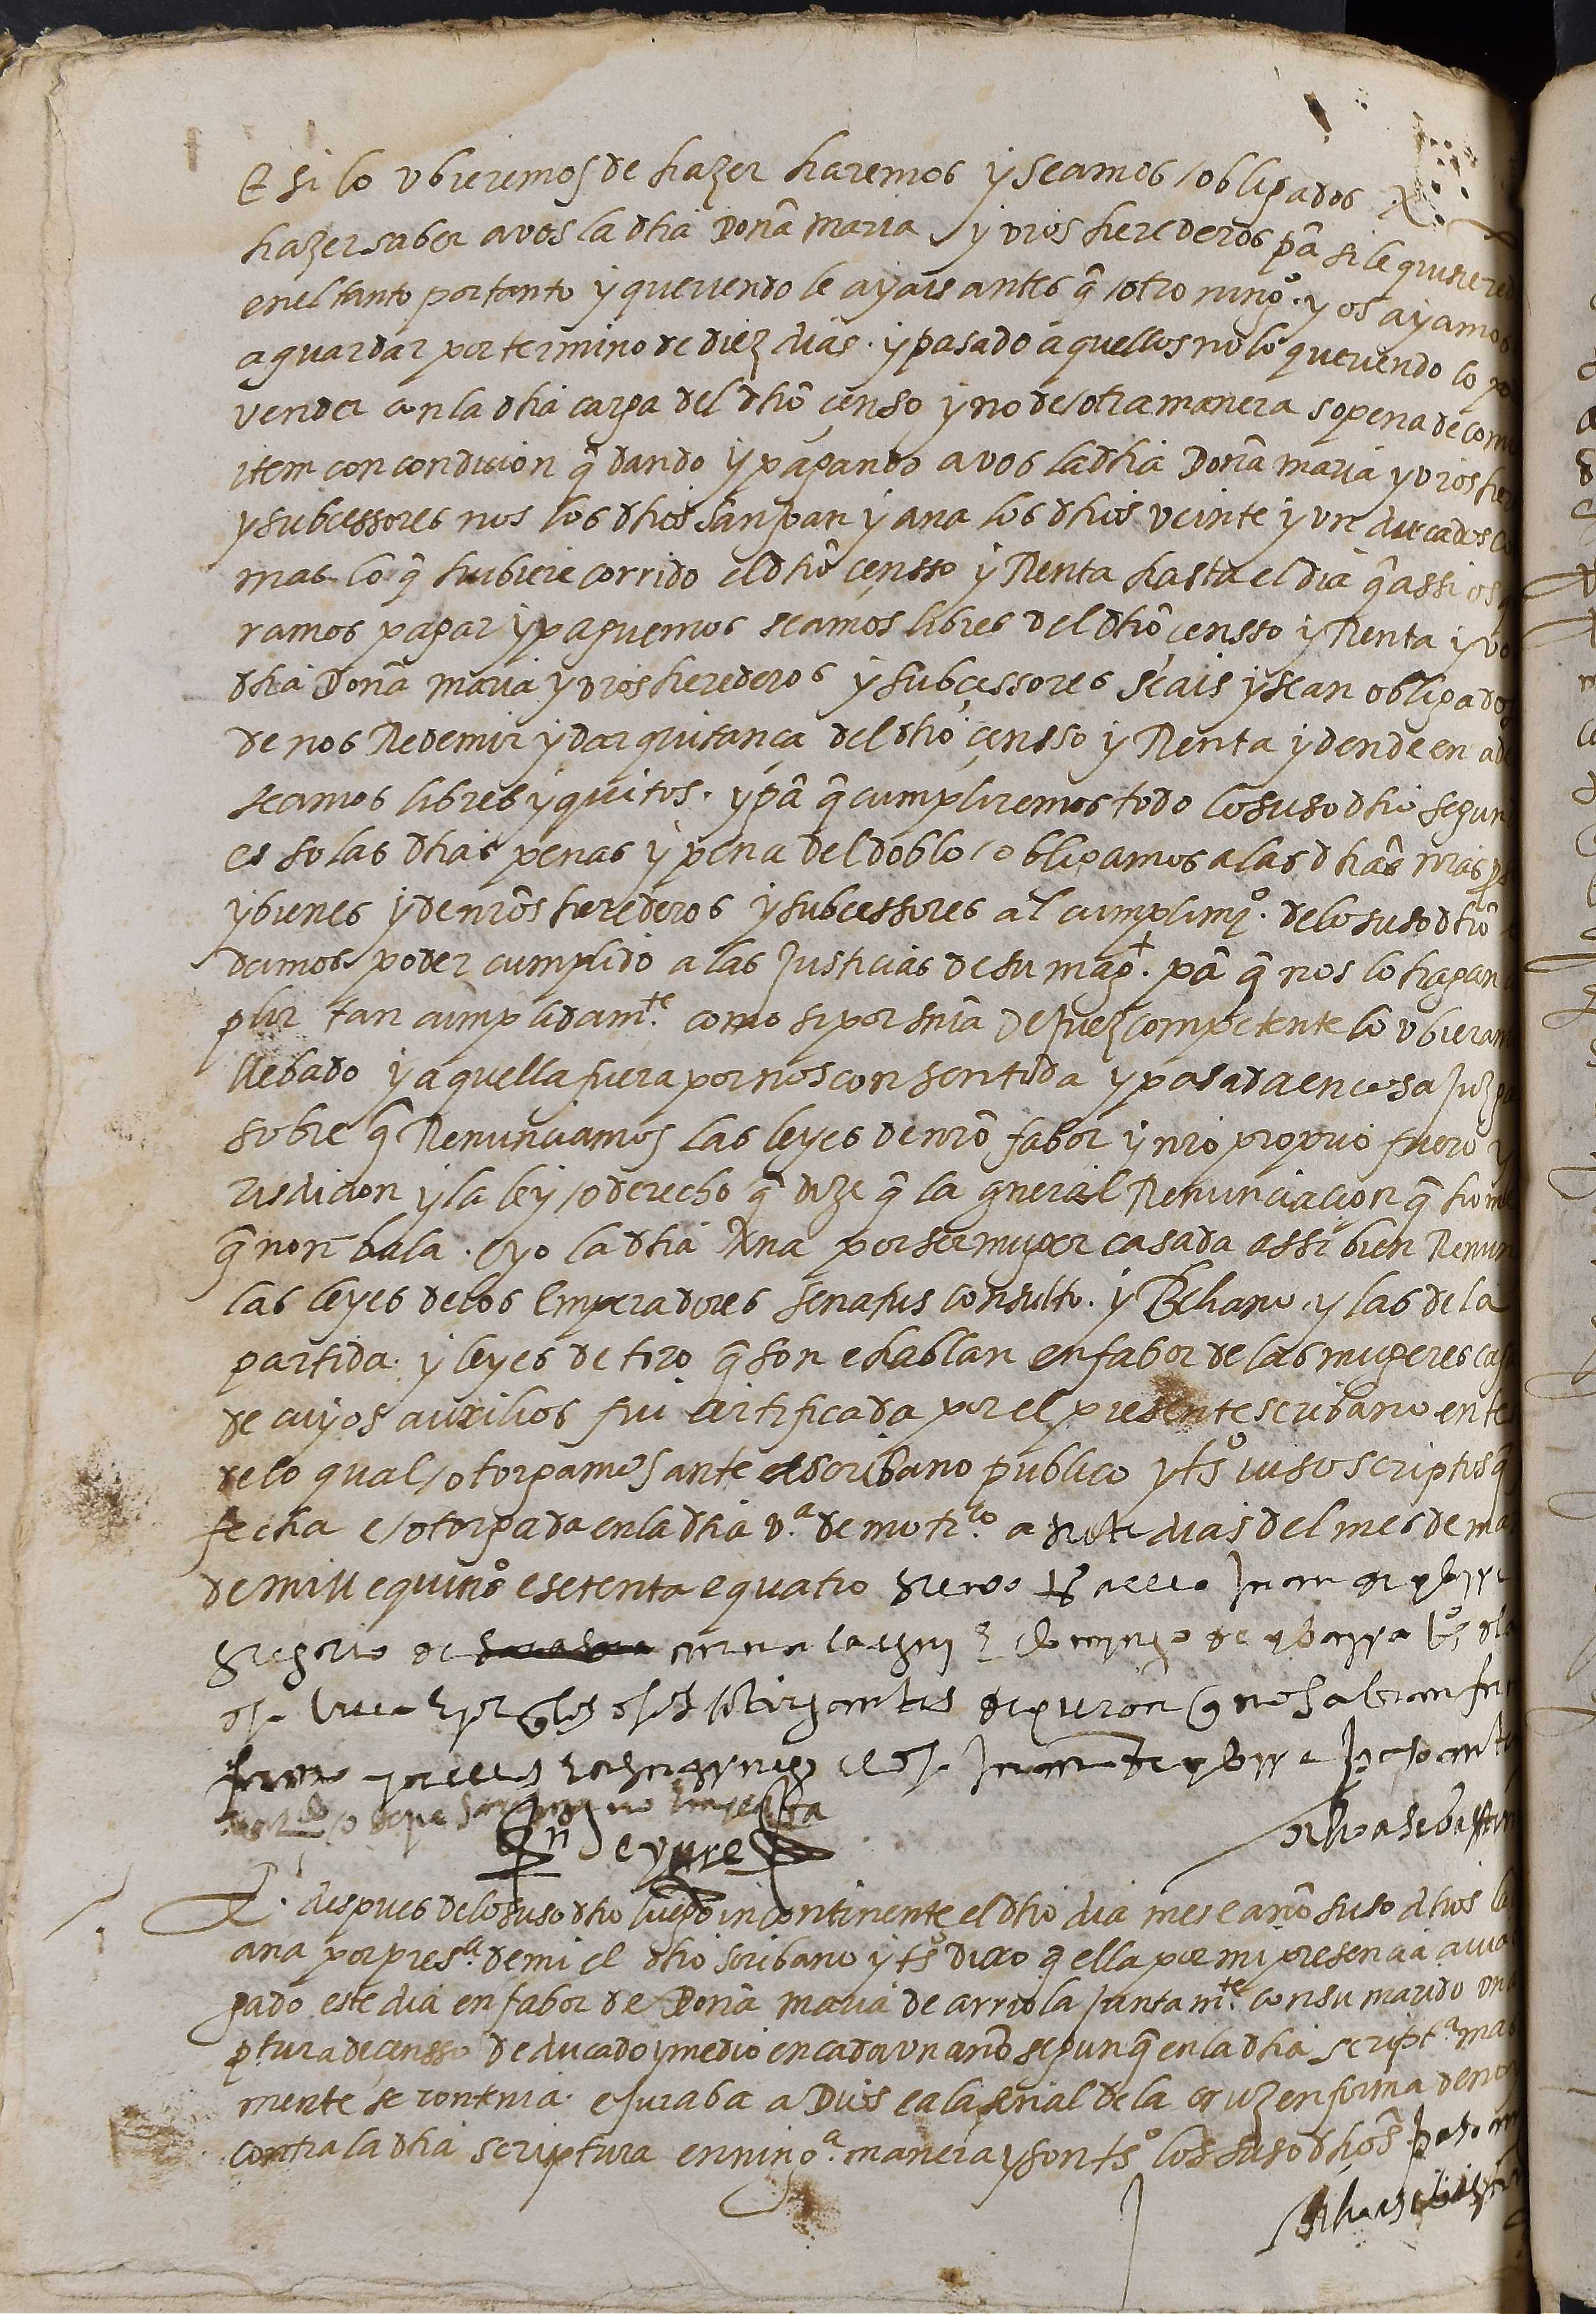 E si lo ubieremos de hazer haremos y seamos obligados
hazer saber a vos la dha Doña maria y vros herederos pa si le quisiere
en el tanto por tanto y queriendo le ayais antes q otro ningo. y os ayamos
aguardar por termino de diez dias. y pasado aquellos no lo queriendo lo
vender con la dha carga del dho çenso y no de otra manera so pena de com
item con condicion q dando y pagando a vos la dha Doña maria y vros her
y subcessores nos los dhos San Joan y ana los dhos veinte y un ducados
mas lo q hubiere corrido el dho çensso y Renta hasta el dia q assi os
ramos pagar y paguemos seamos libres del dho çensso y Renta y vo
dha Doña maria y vros herederos y subçessores seais y sean obligados
de nos Redemir y dar quitança del dho çensso y Renta y dende en ad
seamos libres y quitos. y pa q cumpliremos todo lo suso dho segun
es so las dhas penas y pena del doblo obligamos a las dhas nras
y bienes y de nros herederos y subcessores al cumplimo. de lo suso dho
damos poder cumplido a las Justicias de su magt. pa q nos lo hagan
plir tan cumplidamte. como si por snia de Juez competente lo ubieram
llebado y aquella fuera por nos consentida y pasada en cosa Juzga
sobre q Renunciamos las leyes de nro fabor y nro proprio fuero y
risdicion y la ley o derecho q dize q la gneral Renunciacion q home
q non bala. e yo la dha Ana por ser muger casada assi bien Renun
las leyes de los Emperadores senatus consulto. y Beliano y las de la
partida. y leyes de toro q son e hablan en fabor de las mugeres cas
de cuyos auxilios fui certificada por el presente scribano en te
de lo qual otorgamos ante el scribano publico y tos iuso scriptos q
fecha e otorgada en la dha va. de motrco a siete dias del mes de ma
de mill e quinos e setenta e quatro siendo tos a ello Juan de ybarra
gregorio de y domingo de ybarra vos de la
dha villa e por q los dhos otorgantes dixeron q no sabian fir
firmo por ellos el dho Juan de ybarra paso ante
E. despues de lo suso dho luego incontinente el dho dia mes e año suso dhos la
ana por presa. de mi el dho scribano y tos dixo q ella por mi presencia avia
gado este dia en fabor de Doña maria de arriola Juntamte. con su marido una
ptura de çensso de ducado y medio en cada un año segun q en la dha scripta mas
mente se contenia. e Juraba a Dios e a la señal de la cruz en forma de no
contra la dha scriptura en ninga. manera y son tos los suso dhos paso an